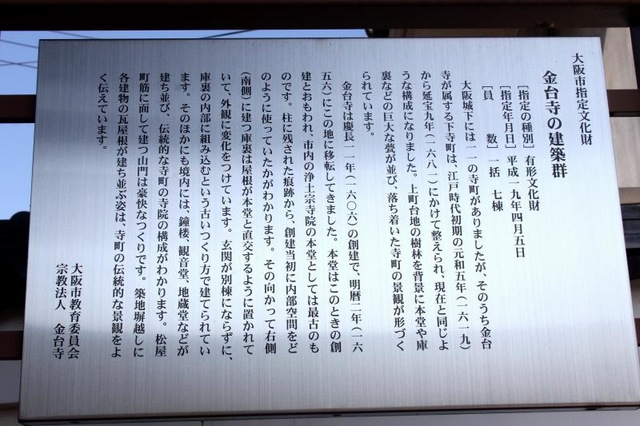 大阪市指定文化財
金台寺の建築群
[指定の種別] 有形文化財
[指定年月日] 平成一九年四月五日
[員　　数] 一括　七棟
大阪城下には一一の寺町がありましたが、そのうち金台
寺が属する下寺町は、江戸時代初期の元和五年（一六一九）
から延宝九年（一六八一）にかけて整えられ、現在と同じよ
うな構成になりました。上町台地の樹林を背景に本堂や庫
裏などの巨大な甍が並び、落ち着いた寺町の景観が形づく
られています。
金台寺は慶長一一年（一六〇六）の創建で、明暦二年（一六
五六）にこの地に移転してきました。本堂はこのときの創
建とおもわれ、市内の浄土宗寺院の本堂としては最古のも
のです。柱に残された痕跡から、創建当初に内部空間をど
のように使っていたかがわかります。その向かって右側
（南側）に建つ庫裏は屋根が本堂と直交するように置かれて
いて、外観に変化をつけています。玄関が別棟にならずに、
庫裏の内部に組み込むという古いつくり方で建てられてい
ます。そのほかにも境内には、鐘楼、観音堂、地蔵堂などが
建ち並び、伝統的な寺町の寺院の構成がわかります。松屋
町筋に面して建つ山門は豪快なつくりです。築地塀越しに
各建物の瓦屋根が建ち並ぶ姿は、寺町の伝統的な景観をよ
く伝えています。
大阪市教育委員会
宗教法人　金台寺